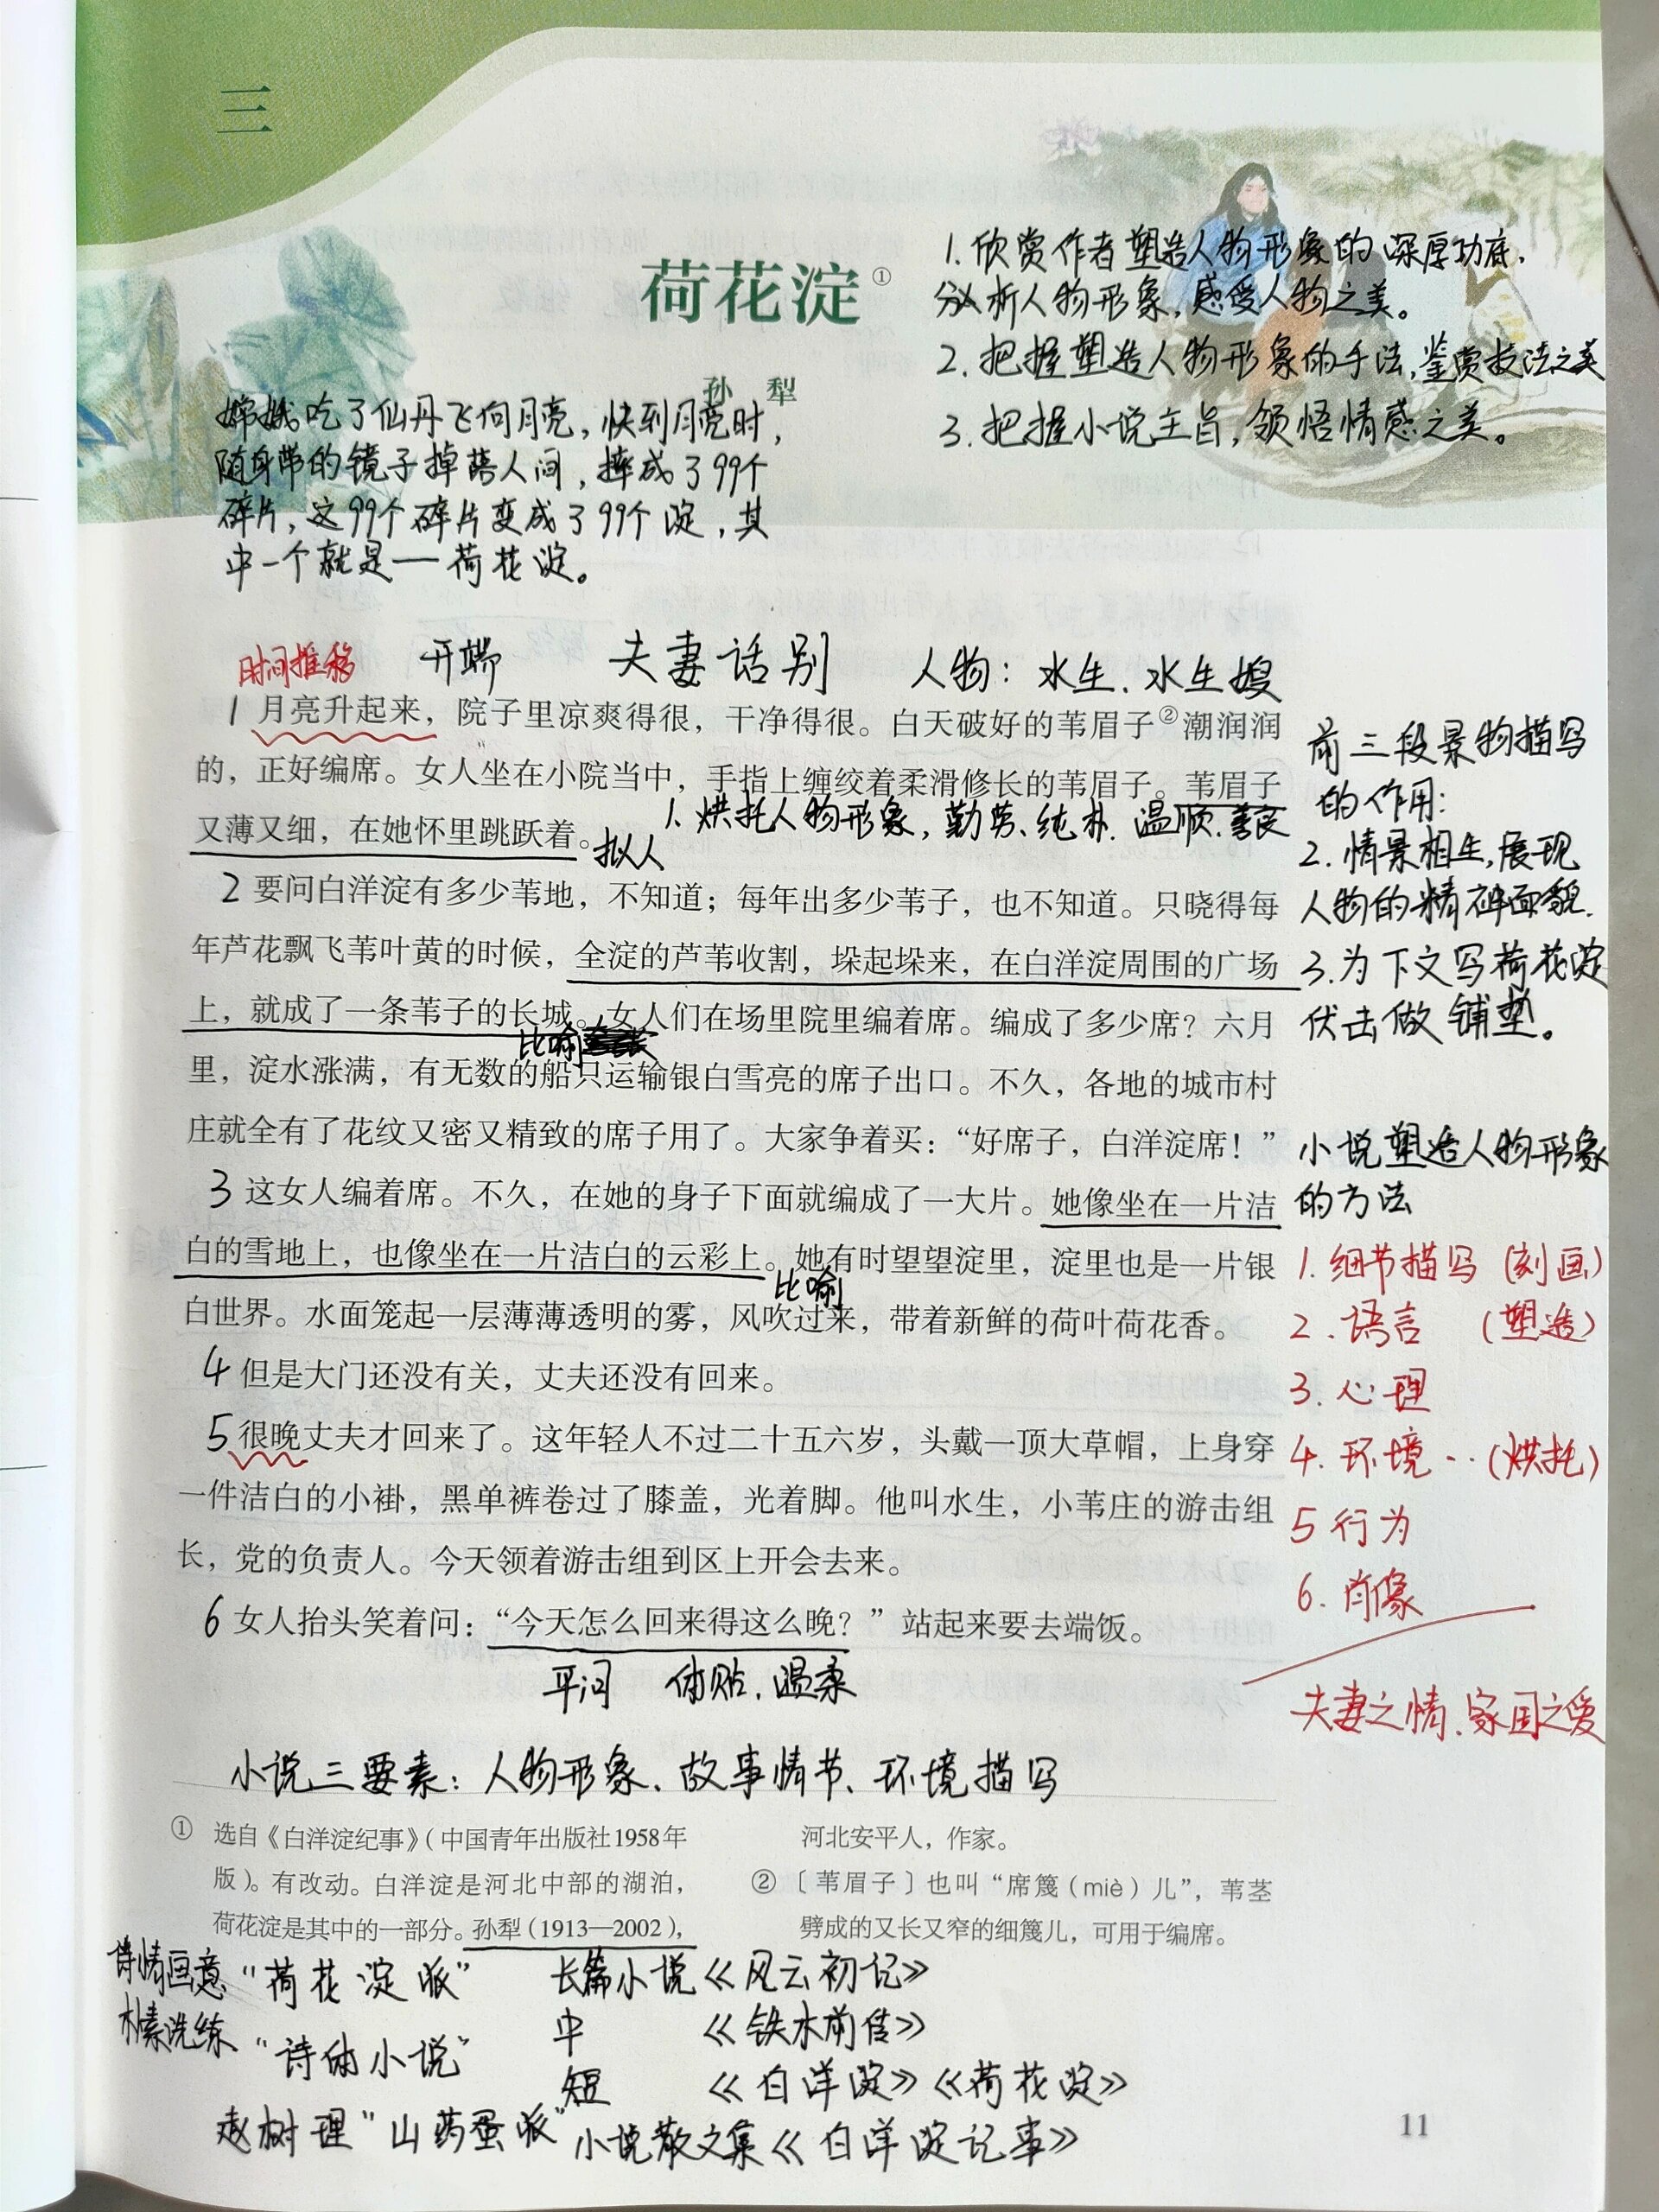 三
荷花淀①
孙 犁
1.欣赏作者塑造人物形象的深厚功底,
分析人物形象,感受人物之美。
2.把握塑造人物形象的手法,鉴赏技法之美
3.把握小说主旨,领悟情感之美。
嫦娥吃了仙丹飞向月亮,快到月亮时,
随身带的镜子掉落人间,摔成了99个
碎片,这99个碎片变成了99个淀,其
中一个就是一荷花淀。
时间推移 开端 夫妻话别 人物:水生、水生嫂
1 月亮升起来,院子里凉爽得很,干净得很。白天破好的苇眉子②潮润润
的,正好编席。女人坐在小院当中,手指上缠绞着柔滑修长的苇眉子。苇眉子
1、烘托人物形象,勤劳、纯朴、温顺、善良
又薄又细,在她怀里跳跃着。拟人
2 要问白洋淀有多少苇地,不知道;每年出多少苇子,也不知道。只晓得每
年芦花飘飞苇叶黄的时候,全淀的芦苇收割,垛起垛来,在白洋淀周围的广场
上,就成了一条苇子的长城。女人们在场里院里编着席。编成了多少席?六月
比喻
里,淀水涨满,有无数的船只运输银白雪亮的席子出口。不久,各地的城市村
庄就全有了花纹又密又精致的席子用了。大家争着买:“好席子,白洋淀席!”
3 这女人编着席。不久,在她的身子下面就编成了一大片。她像坐在一片洁
白的雪地上,也像坐在一片洁白的云彩上。她有时望望淀里,淀里也是一片银
比喻
白世界。水面笼起一层薄薄透明的雾,风吹过来,带着新鲜的荷叶荷花香。
4 但是大门还没有关,丈夫还没有回来。
5 很晚丈夫才回来了。这年轻人不过二十五六岁,头戴一顶大草帽,上身穿
一件洁白的小褂,黑单裤卷过了膝盖,光着脚。他叫水生,小苇庄的游击组
长,党的负责人。今天领着游击组到区上开会去来。
6 女人抬头笑着问:“今天怎么回来得这么晚?”站起来要去端饭。
平问 体贴、温柔
前三段景物描写
的作用:
2.情景相生,展现
人物的精神面貌.
3.为下文写荷花淀
伏击做铺垫。
小说塑造人物形象
的方法
1.细节描写(刻画)
2.语言 (塑造)
3.心理
4.环境··(烘托)
5 行为
6.肖像
夫妻之情、家国之爱
小说三要素:人物形象、故事情节、环境描写
① 选自《白洋淀纪事》(中国青年出版社1958年
版)。有改动。白洋淀是河北中部的湖泊,
荷花淀是其中的一部分。孙犁(1913—2002),
河北安平人,作家。
② 〔苇眉子〕也叫“席篾(miè)儿”,苇茎
劈成的又长又窄的细篾儿,可用于编席。
诗情画意 “荷花淀派” 长篇小说《风云初记》
朴素洗练 中 《铁木前传》
“诗体小说”
短 《白洋淀》《荷花淀》
赵树理“山药蛋派” 小说散文集《白洋淀记事》
11